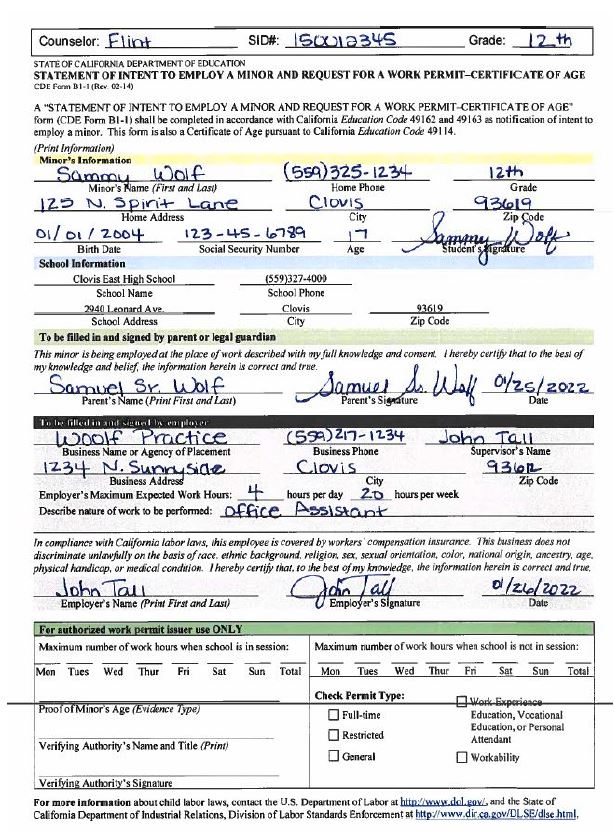 Counselor: Flint SID#: 150012345 Grade: 12th
STATE OF CALIFORNIA DEPARTMENT OF EDUCATION
STATEMENT OF INTENT TO EMPLOY A MINOR AND REQUEST FOR A WORK PERMIT–CERTIFICATE OF AGE
CDE Form B1-1 (Rev. 02-14)
A "STATEMENT OF INTENT TO EMPLOY A MINOR AND REQUEST FOR A WORK PERMIT–CERTIFICATE OF AGE"
form (CDE Form B1-1) shall be completed in accordance with California Education Code 49162 and 49163 as notification of intent to
employ a minor. This form is also a Certificate of Age pursuant to California Education Code 49114.
(Print Information)
Minor's Information
Sammy Wolf (559)325-1234 12th
Minor's Name (First and Last) Home Phone Grade
125 N. Spirit Lane Clovis 93619
Home Address City Zip Code
01/01/2004 123-45-6789 17 Sammy Wolf
Birth Date Social Security Number Age Student's Signature
School Information
Clovis East High School (559)327-4000
School Name School Phone
2940 Leonard Ave. Clovis 93619
School Address City Zip Code
To be filled in and signed by parent or legal guardian
This minor is being employed at the place of work described with my full knowledge and consent. I hereby certify that to the best of
my knowledge and belief, the information herein is correct and true.
Samuel Sr. Wolf Samuel Sr. Wolf 01/25/2022
Parent's Name (Print First and Last) Parent's Signature Date
To be filled in and signed by employer
Woolf Practice (559)217-1234 John Tall
Business Name or Agency of Placement Business Phone Supervisor's Name
1234 N. Sunnyside Clovis 93612
Business Address City Zip Code
Employer's Maximum Expected Work Hours: 4 hours per day 20 hours per week
Describe nature of work to be performed: Office Assistant
In compliance with California labor laws, this employee is covered by workers' compensation insurance. This business does not
discriminate unlawfully on the basis of race, ethnic background, religion, sex, sexual orientation, color, national origin, ancestry, age,
physical handicap, or medical condition. I hereby certify that, to the best of my knowledge, the information herein is correct and true.
John Tall John Tall 01/26/2022
Employer's Name (Print First and Last) Employer's Signature Date
For authorized work permit issuer use ONLY
Maximum number of work hours when school is in session: Maximum number of work hours when school is not in session:
Mon Tues Wed Thur Fri Sat Sun Total Mon Tues Wed Thur Fri Sat Sun Total
Proof of Minor's Age (Evidence Type)
Verifying Authority's Name and Title (Print)
Verifying Authority's Signature
Check Permit Type:
Full-time
Restricted
General
Work Experience
Education, Vocational
Education, or Personal
Attendant
Workability
For more information about child labor laws, contact the U.S. Department of Labor at http://www.dol.gov/, and the State of
California Department of Industrial Relations, Division of Labor Standards Enforcement at http://www.dir.ca.gov/DLSE/dlse.html.